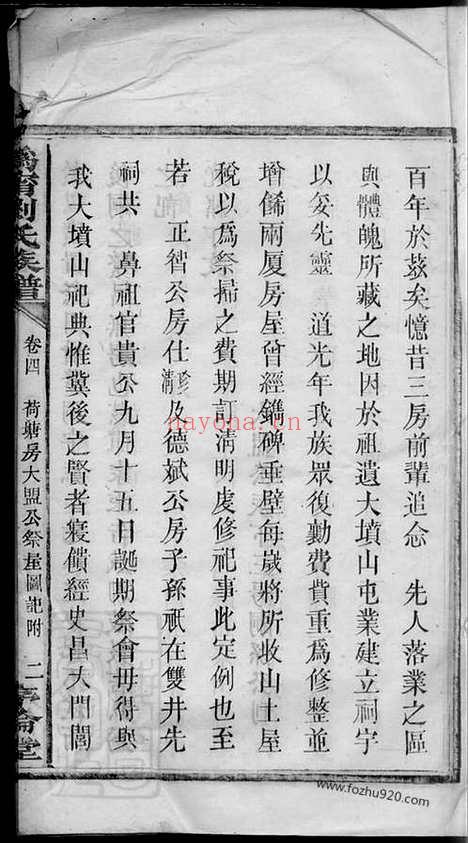 百年於茲矣憶昔三房前輩追念　先人落業之區
與體魄所藏之地因於祖遺大墳山屯業建立祠宇
以妥先靈　道光年我族眾復勸費貲重為修整並
增餙兩厦房屋曾經鐫碑垂壁每歲將所收山土屋
稅以為祭掃之費期訂清明虔修祀事此定例也至
若　正智公房仕清珍及德斌公房子孫祇在雙井先
祠共　鼻祖官貴公九月十五日誕期祭會毋得與
我大墳山祀典惟冀後之賢者寢饋經史昌大門閭
劉氏族譜
卷四　荷塘房大盟公祭屋圖記附　二
倫堂
nayona.cn
www.fozhu920.com